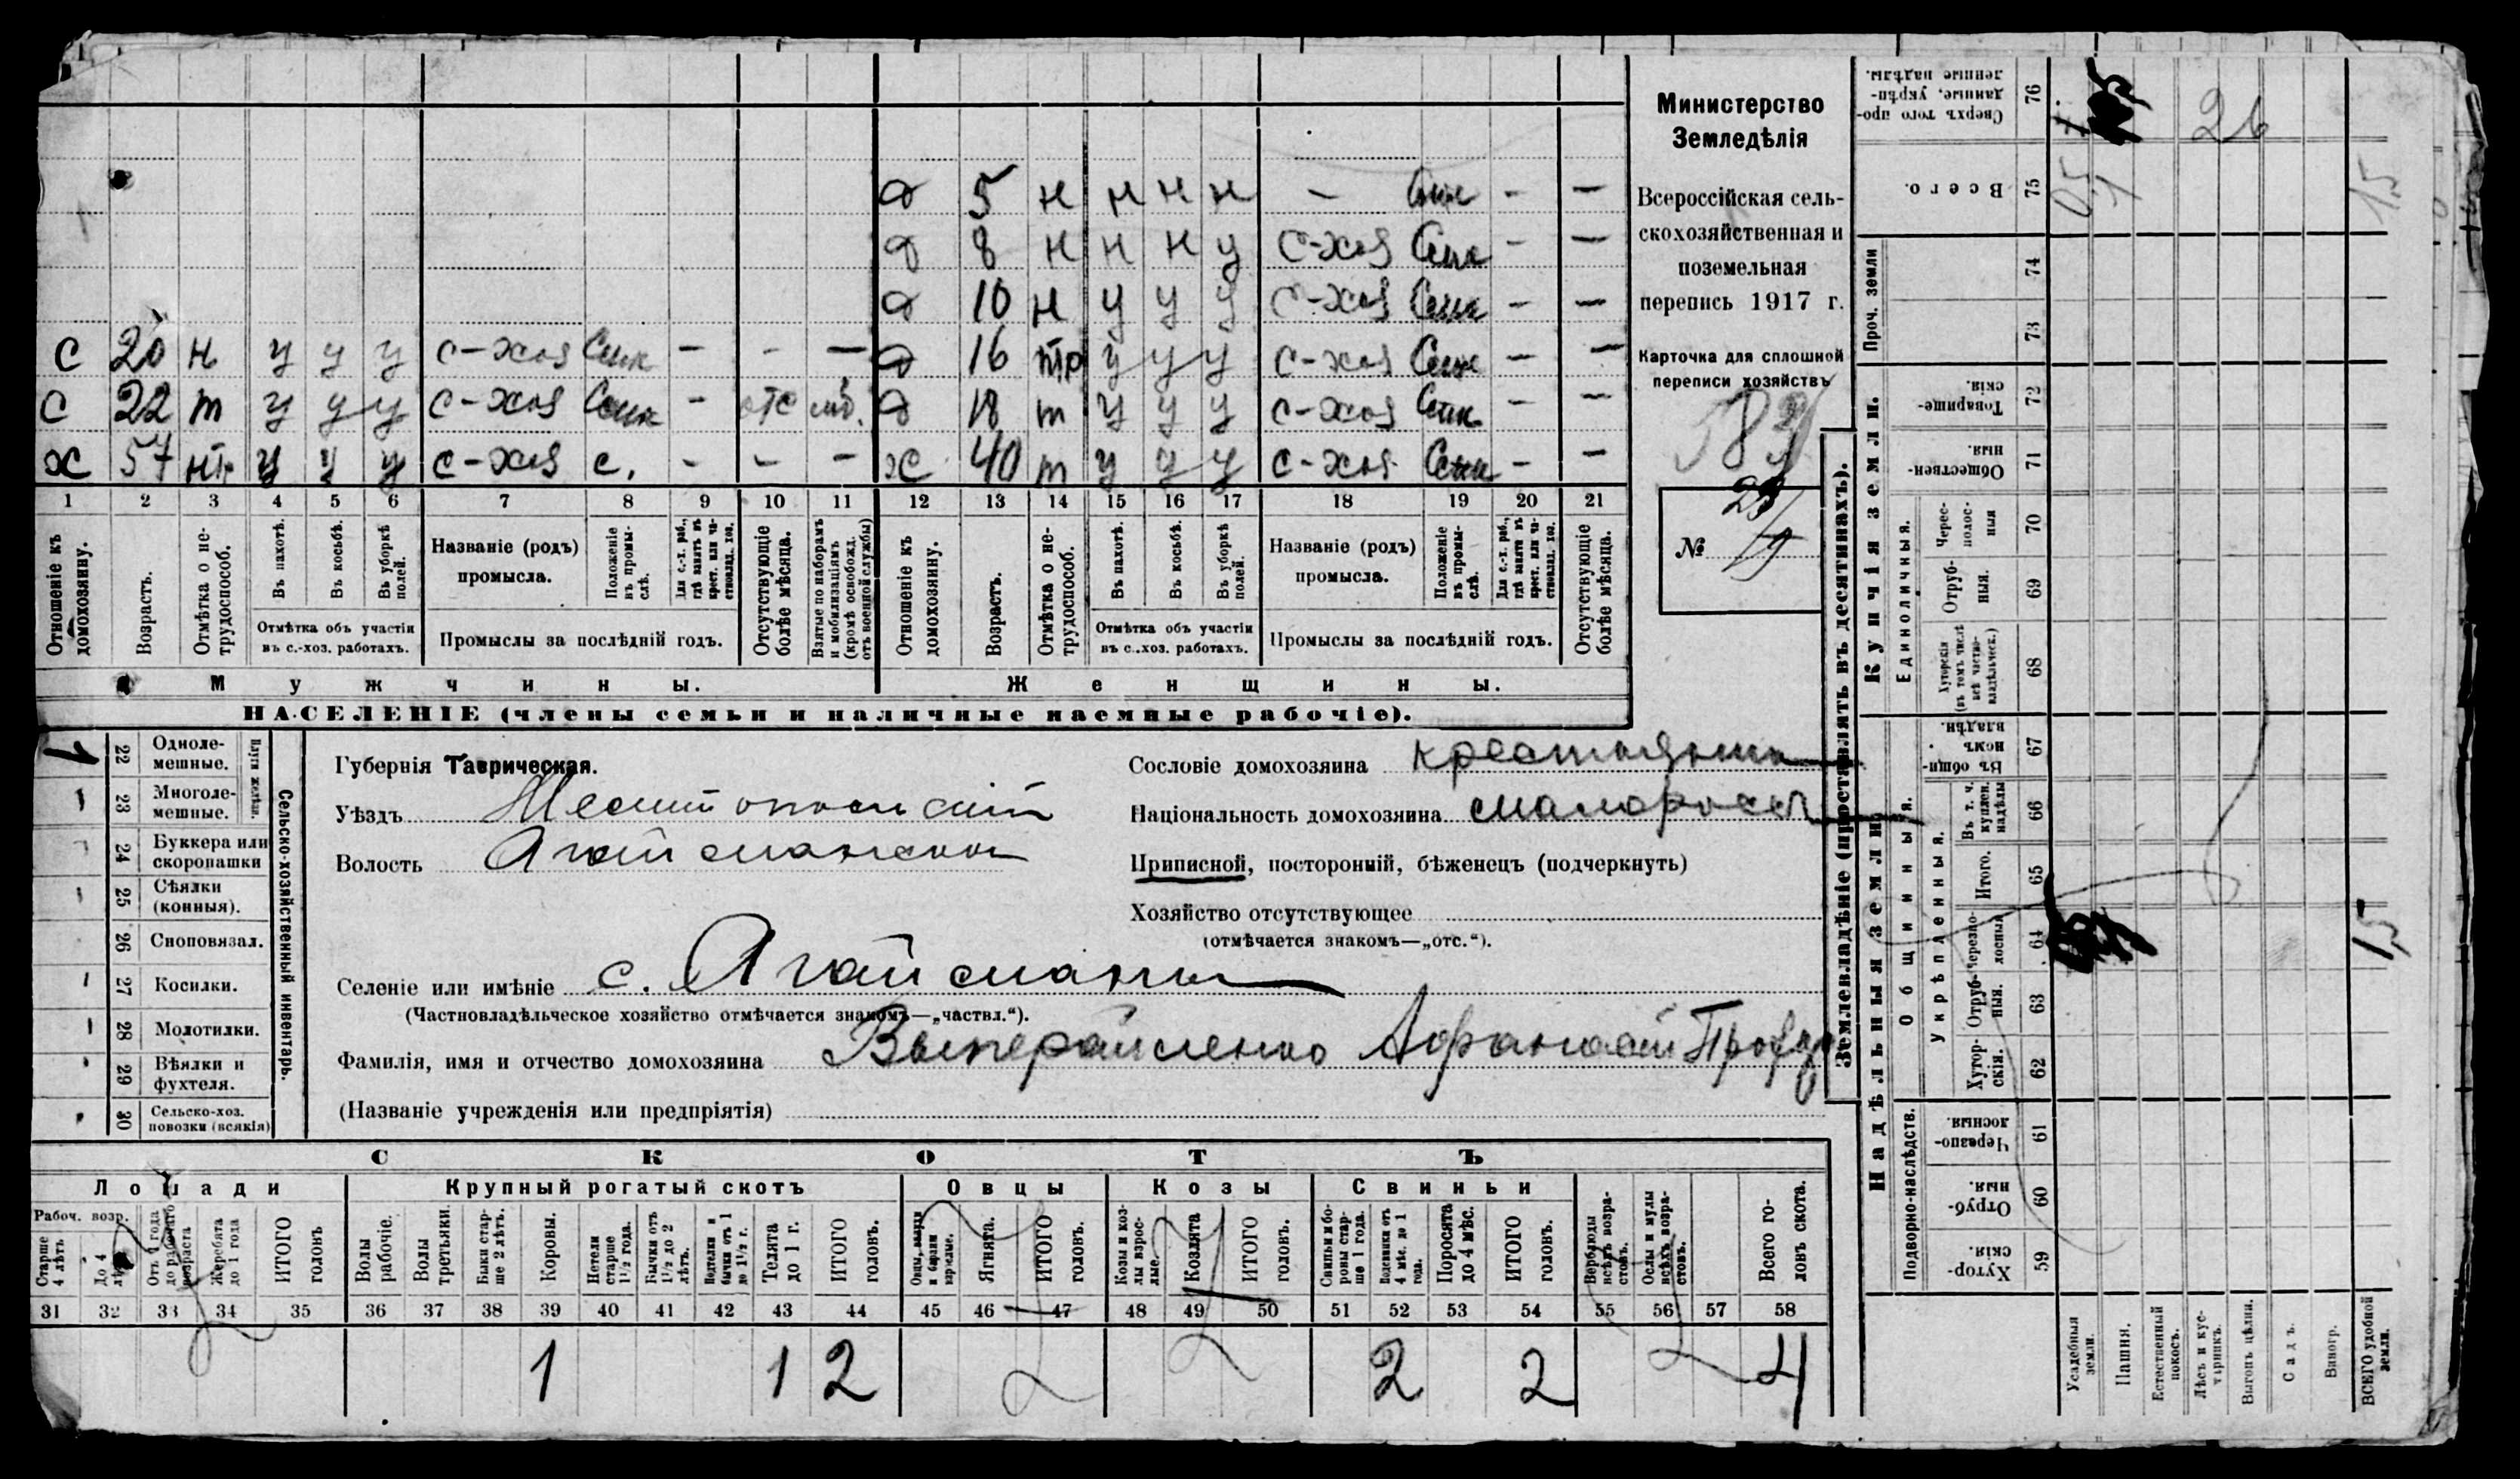 Министерство
Земледѣлія
Всероссійская сель-
скохозяйственная и
поземельная
перепись 1917 г.
Карточка для сплошной
переписи хозяйствъ
№ 29/9
д 5 н н н н - Сам - -
д 8 н н н у с-хоз Сам - -
д 10 н у у у с-хоз Сам - -
с 20 н у у у с-хоз Сам - - - д 16 тр у у у с-хоз Сам - -
с 22 т у у у с-хоз Сам - отс моб. д 18 т у у у с-хоз Сам - -
х 57 нт у у у с-хоз с. - - - ж 40 т у у у с-хоз Сам - -
1 2 3 4 5 6 7 8 9 10 11 12 13 14 15 16 17 18 19 20 21
Отношеніе къ домохозяину.
Возрастъ.
Отмѣтка о не-трудоспособ.
Въ пахотѣ.
Въ косьбѣ.
Въ уборкѣ полей.
Отмѣтка объ участіи
въ с.-хоз. работахъ.
Названіе (родъ)
промысла.
Положеніе въ промы-слѣ.
Для с.-х. раб., гдѣ занятъ въ крест. или ча-стновлад. хоз.
Промыслы за послѣдній годъ.
Отсутствующіе болѣе мѣсяца.
Взятые по наборамъ и мобилизаціямъ (кромѣ освобожд. отъ военной службы)
Отношеніе къ домохозяину.
Возрастъ.
Отмѣтка о не-трудоспособ.
Въ пахотѣ.
Въ косьбѣ.
Въ уборкѣ полей.
Отмѣтка объ участіи
въ с.-хоз. работахъ.
Названіе (родъ)
промысла.
Положеніе въ промы-слѣ.
Для с.-х. раб., гдѣ занятъ въ крест. или ча-стновлад. хоз.
Промыслы за послѣдній годъ.
Отсутствующіе болѣе мѣсяца.
Мужчины. Женщины.
НАСЕЛЕНІЕ (члены семьи и наличные наемные рабочіе).
Сельско-хозяйственный инвентарь.
Плуги желѣзн.
1 22 Одноле-мешные.
23 Многоле-мешные.
24 Буккера или скоропашки
25 Сѣялки (конныя).
26 Сноповязал.
27 Косилки.
28 Молотилки.
29 Вѣялки и фухтеля.
30 Сельско-хоз. повозки (всякія)
Губернія Таврическая.
Уѣздъ Мелитопольскій
Волость Агайманская
Сословіе домохозяина крестьянинъ
Національность домохозяина малороссъ
Приписной, посторонній, бѣженецъ (подчеркнуть)
Хозяйство отсутствующее
(отмѣчается знакомъ—„отс.“).
Селеніе или имѣніе с. Агайманы
(Частновладѣльческое хозяйство отмѣчается знакомъ—„частвл.“).
Фамилія, имя и отчество домохозяина Афанасій
(Названіе учрежденія или предпріятія)
СКОТЪ
Лошади Крупный рогатый скотъ Овцы Козы Свиньи
Рабоч. возр.
Старше 4 лѣтъ
До 4 лѣтъ
Отъ 1 года до рабочаго возраста
Жеребята до 1 года
ИТОГО головъ
Волы рабочіе.
Волы третьяки.
Быки стар-ше 2 лѣтъ.
Коровы.
Нетели старше 1½ года.
Бычки отъ 1½ до 2 лѣтъ.
Подтелки и бычки отъ 1 до 1½ г.
Телята до 1 г.
ИТОГО головъ.
Овцы, валухи и бараны взрослые.
Ягнята.
ИТОГО головъ.
Козы и коз-лы взрос-лые.
Козлята
ИТОГО головъ.
Свиньи и бо-ровы стар-ше 1 года.
Подсвинки отъ 4 мѣс. до 1 года.
Поросята до 4 мѣс.
ИТОГО головъ.
Верблюды всѣхъ возра-стовъ.
Ослы и мулы всѣхъ возра-стовъ.
Всего го-ловъ скота.
31 32 33 34 35 36 37 38 39 40 41 42 43 44 45 46 47 48 49 50 51 52 53 54 55 56 57 58
1 1 2 2 2 4
Землевладѣніе (проставлять въ десятинахъ).
Надѣльныя земли. Купчія земли. Проч. земли
Подворно-наслѣдств.
Общинныя.
Укрѣпленныя.
Единоличныя.
59 Хутор-скія.
60 Отруб-ныя.
61 Черезпо-лосныя.
62 Хутор-скія.
63 Отруб-ныя.
64 Черезпо-лосныя
65 Итого.
66 Въ т. ч. куплен. надѣлы
67 Въ общин-номъ владѣн.
68 Хуторскія (въ томъ числѣ всѣ частно-владѣльческ.)
69 Отруб-ныя.
70 Черес-полос-ныя
71 Обществен-ныя.
72 Товарище-скія.
73
74
75 Всего.
76 Сверхъ того про-данные, укрѣп-ленные надѣлы.
Усадебныя земли.
Пашня.
Естественный покосъ.
Лѣсъ и кус-тарникъ.
Выгонъ цѣлин.
Садъ.
Виногр.
ВСЕГО удобной земли.
26
15
15